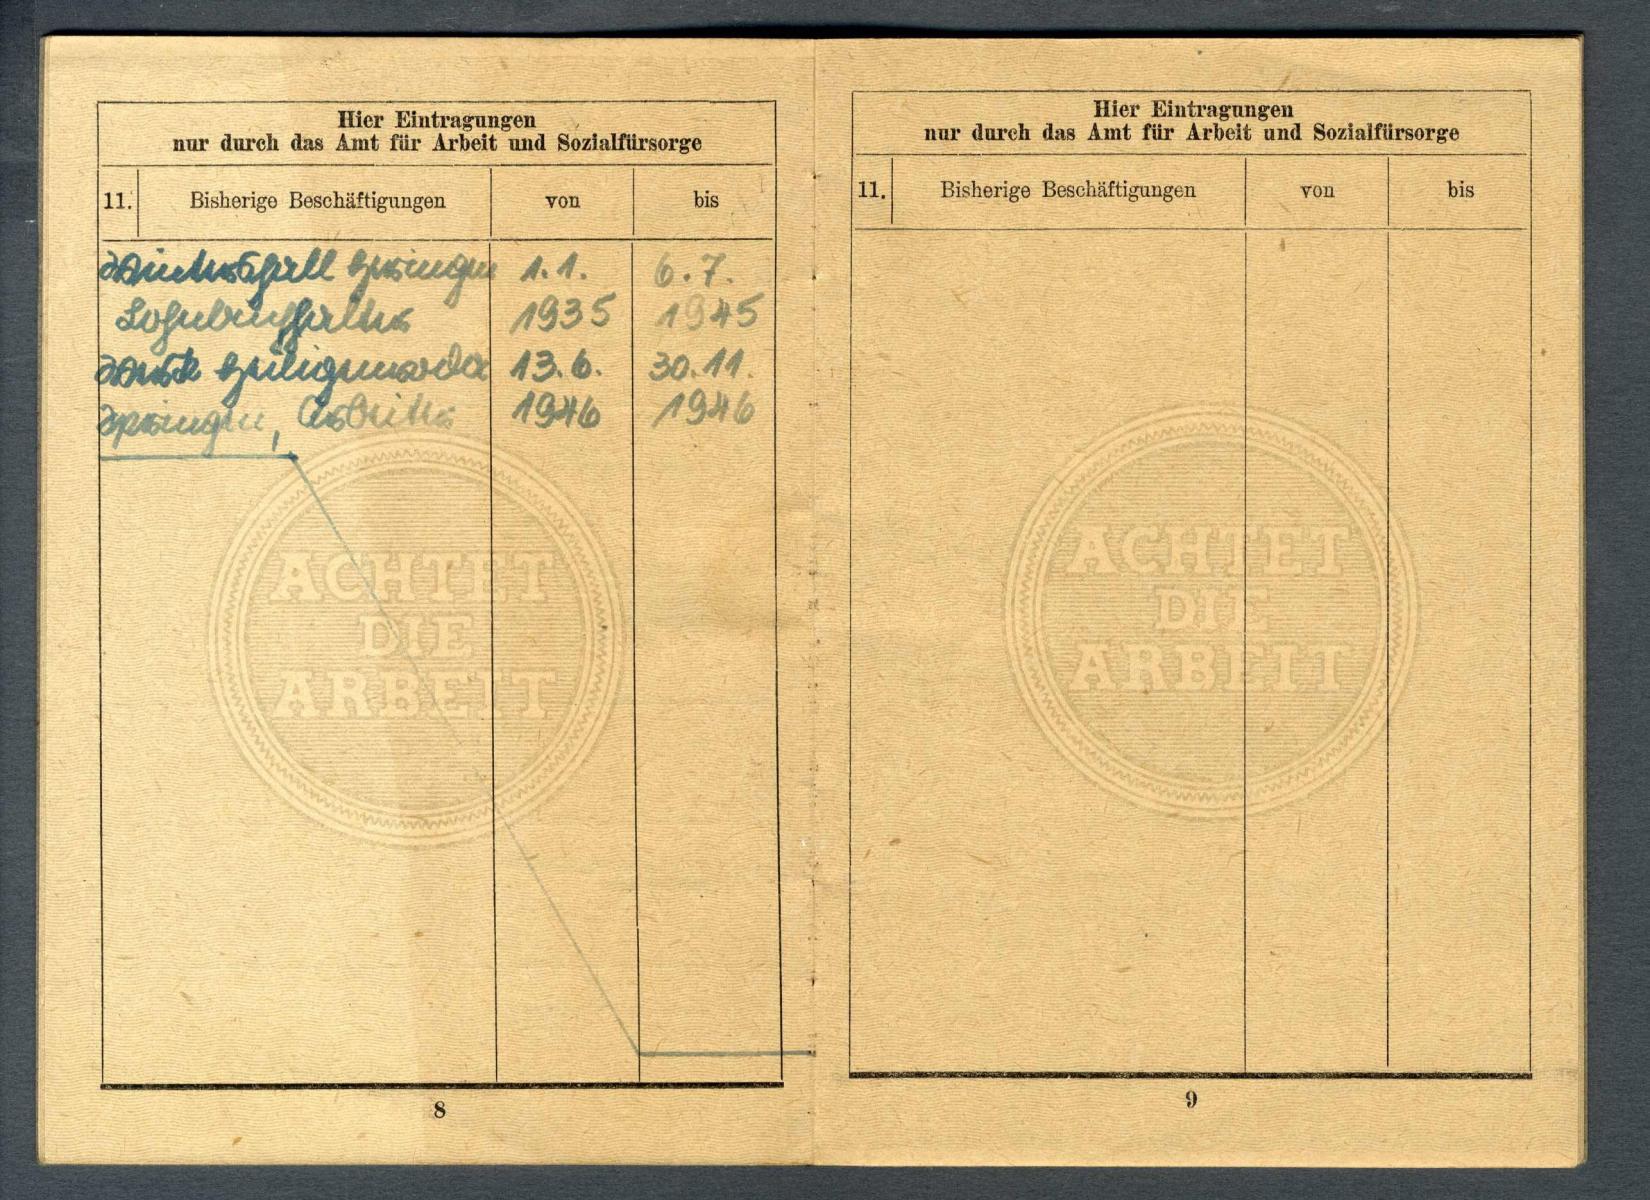 Hier Eintragungen
nur durch das Amt für Arbeit und Sozialfürsorge
11. Bisherige Beschäftigungen von bis
Wintershall Heringen 1.1. 6.7.
Lohnbuchhalter 1935 1945
Werk Heiligenroda 13.6. 30.11.
Springen, Arbeiter 1946 1946
ACHTET
DIE
ARBEIT
8
Hier Eintragungen
nur durch das Amt für Arbeit und Sozialfürsorge
11. Bisherige Beschäftigungen von bis
ACHTET
DIE
ARBEIT
9